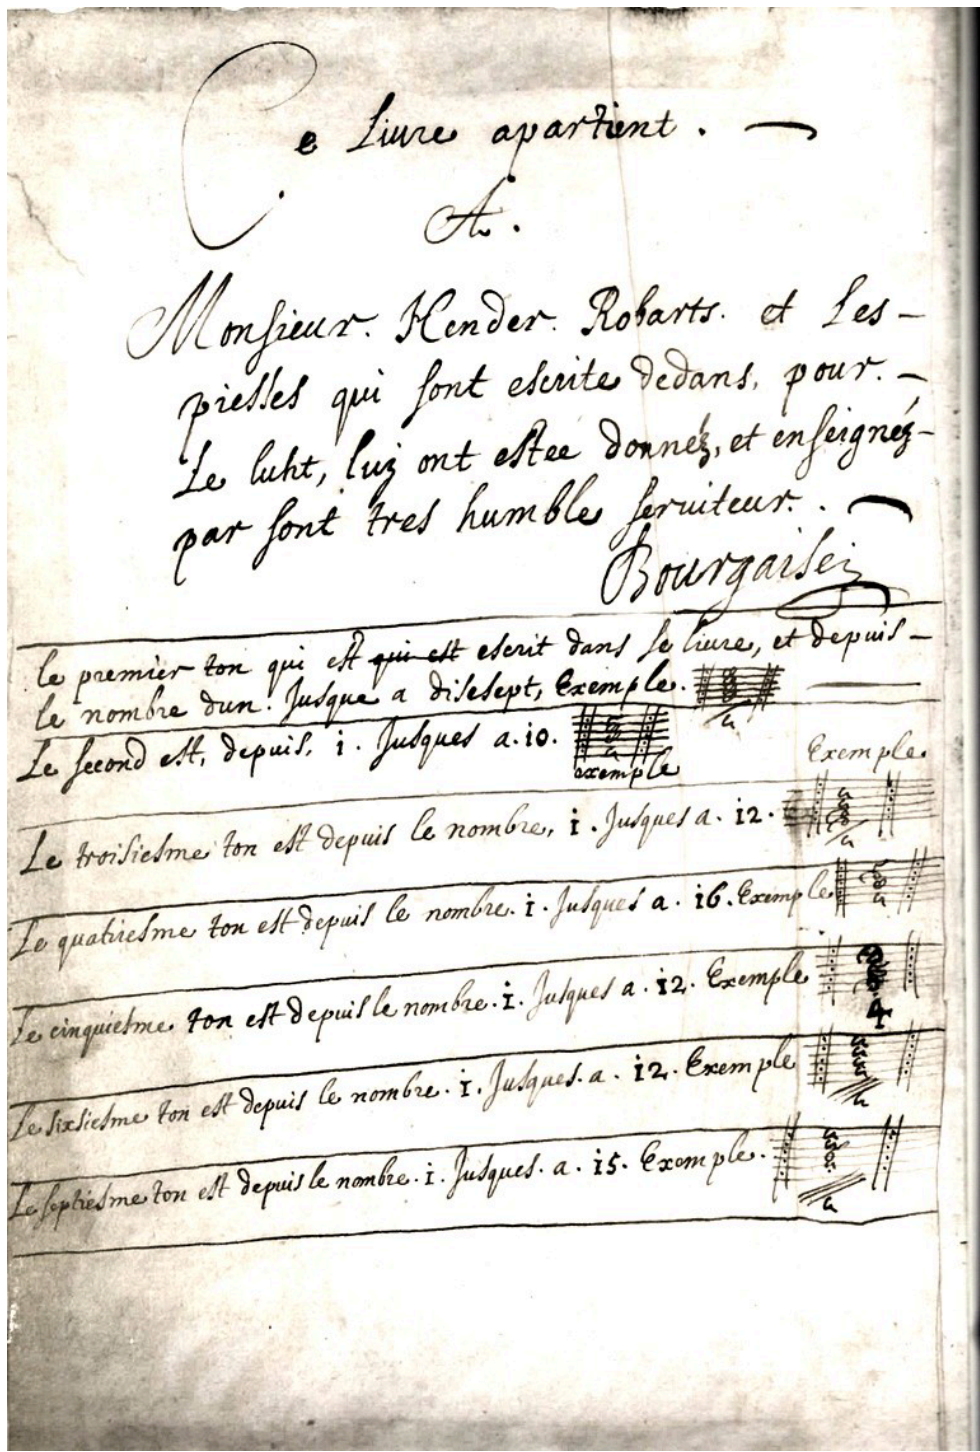 Ce Liure apartient. —
A.
Monsieur. Hender. Robarts. et Les –
piesses qui sont escrite dedans, pour. –
Le luht, luy ont estee donnéz, et enseignéz –
par sont tres humble seruiteur. . —
Bourgaisei
le premier ton qui est qui est escrit dans se liure, et depuis –
le nombre dun. Jusque a disesept, Exemple. —
Le second est, depuis, i. Jusques a. 10.
exemple
Exemple.
Le troisiesme ton est depuis le nombre, i. Jusques a. 12.
Le quatriesme ton est depuis le nombre. i. Jusques a. 16. Exemple
Le cinquiesme ton est depuis le nombre. i. Jusques a. 12. Exemple
4
Le sixsiesme ton est depuis le nombre. i. Jusques. a. 12. Exemple
Le septiesme ton est depuis le nombre. i. Jusques. a. 15. Exemple.